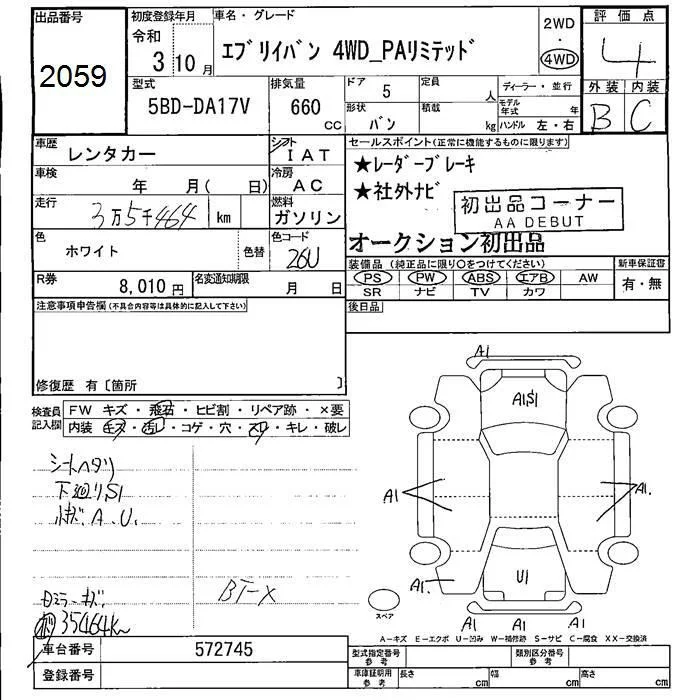 出品番号
2059
初度登録年月
令和
3年10月
車名・グレード
エブリイバン 4WD_PAリミテッド
2WD
・
4WD
評価点
4
外装 内装
B C
型式
5BD-DA17V
排気量
660
CC
ドア
5
定員
人
形状
バン
積載
kg
ディーラー・並行
モデル年式 年
ハンドル 左・右
車歴
レンタカー
シフト
IAT
車検
年 月( 日)
冷房
AC
走行
3万5千464 km
燃料
ガソリン
色
ホワイト
色替
色コード
26U
R券
8,010円
名変通知期限
月 日
セールスポイント(正常に機能するものに限ります)
★レーダーブレーキ
★社外ナビ
初出品コーナー
AA DEBUT
オークション初出品
装備品(純正品に限り○をつけてください)
PS PW ABS エアB AW
SR ナビ TV カワ
新車保証書
有・無
後日品
注意事項申告欄(不具合内容等は具体的に記入して下さい)
修復歴 有〔箇所 〕
検査員
記入欄
FW キズ・飛石・ヒビ割・リペア跡・×要
内装 キズ・汚レ・コゲ・穴・スレ・キレ・破レ
シートヘタリ
下廻りS1
小キズ A.U.
ミラーキズ
35464km
BT-X
A1
A1S1
A1
A1.
A1.
U1
A1 A1 A1
スペア
A-キズ E-エクボ U-凹み W-補修跡 S-サビ C-腐食 XX-交換済
車台番号
572745
登録番号
型式指定番号
参考
類別区分番号
参考
車庫証明用
参考
長さ cm
幅 cm
高さ cm